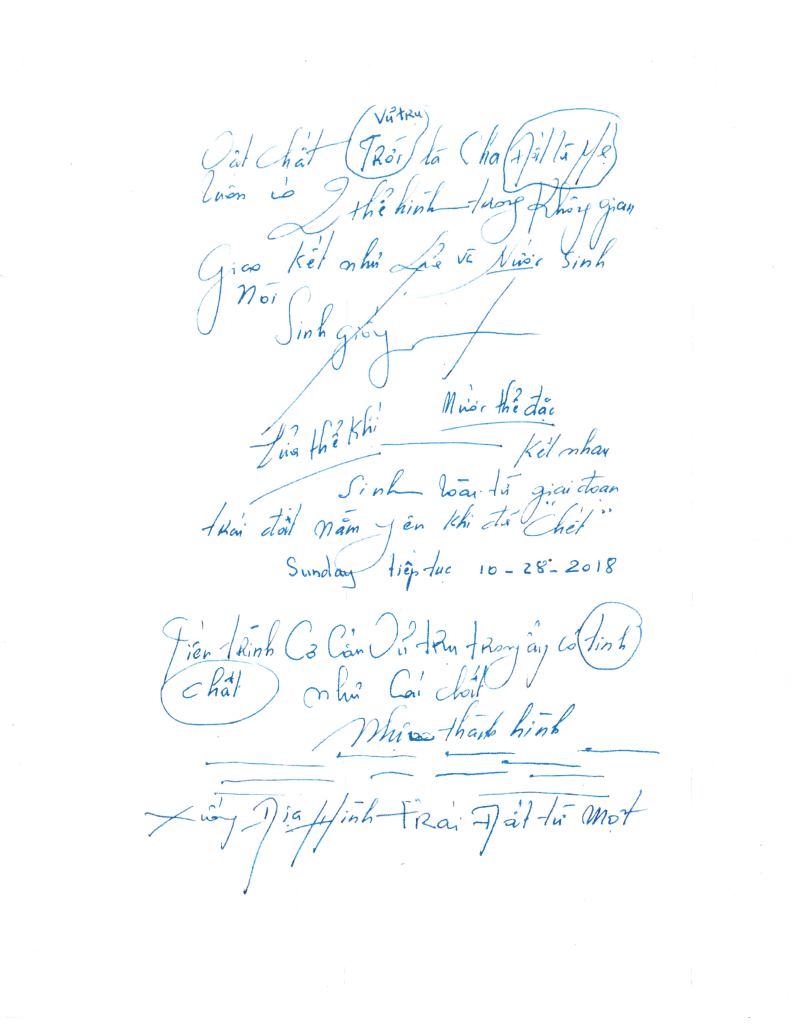 Vũ trụ
Vật chất Trời là Cha Đất là Mẹ
luôn có 2 thể hình tượng Không gian
Giao kết như Lửa và Nước sinh
Nòi
Sinh giống
Nước thể đặc
Lửa thể khí
kết nhau
Sinh loài từ giai đoạn
trái đất nằm yên khi đó "Chết"
Sunday tiếp tục 10-28-2018
Tiến trình Cơ Cấn Vũ trụ trong ấy có tính
chất như Cái chất
Nhựa thành hình
Xuống Địa Hình Trái Đất từ Một